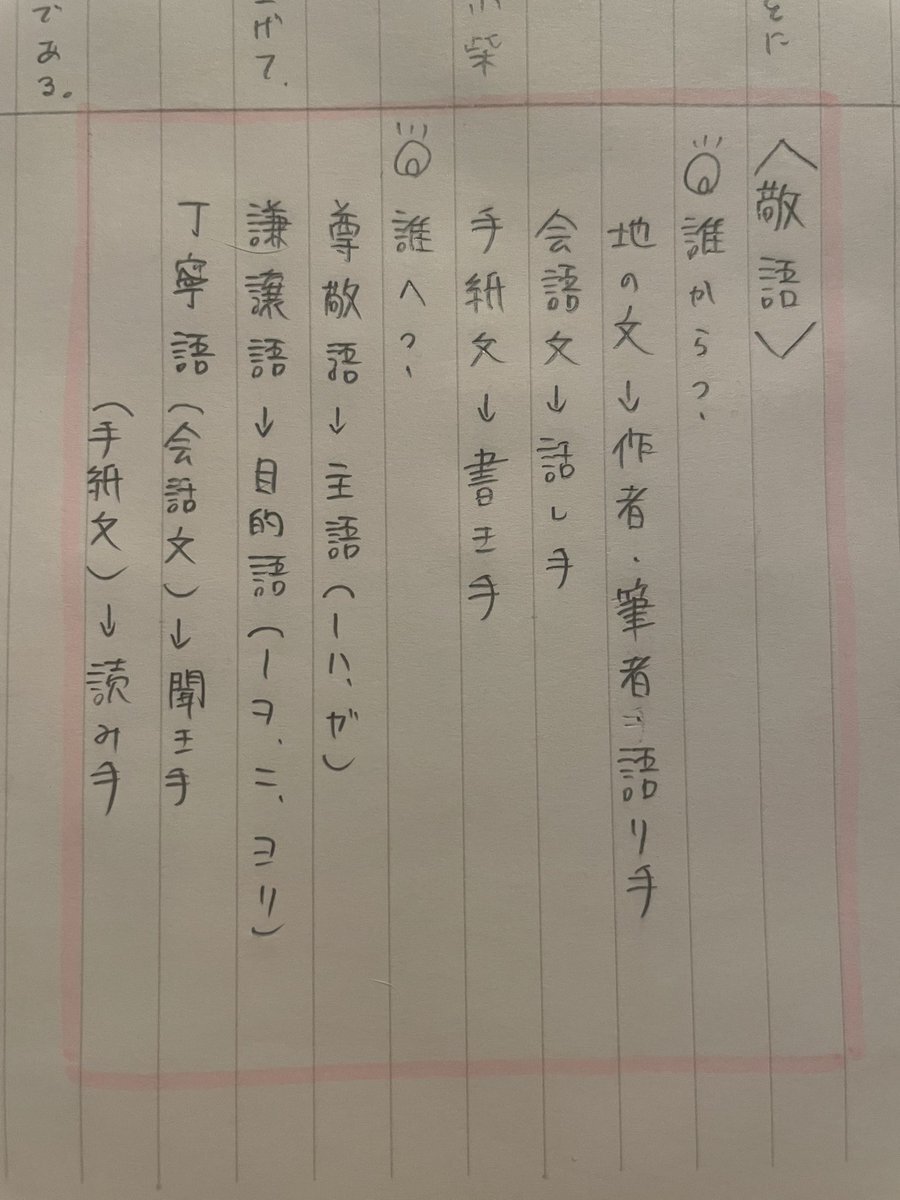 とに
小柴
上げて、
である。
〈敬語〉
誰から?
地の文→作者・筆者=語り手
会語文→話し手
手紙文→書き手
誰へ?
尊敬語→主語(ーハ、ガ)
謙譲語→目的語(ーヲ、ニ、ヨリ)
丁寧語(会話文)→聞き手
(手紙文)→読み手